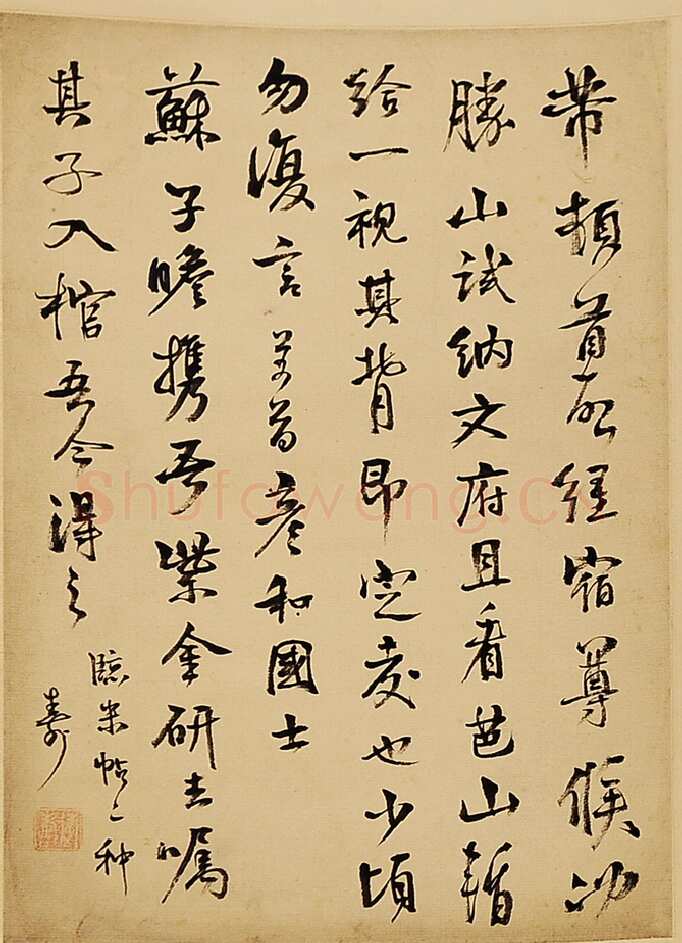 芾頓首啟經宿尊候冲
勝山試納文府且看芭山暫
給一視其背即定交也少頃
勿復言芾首彥和國士
蘇子瞻攜吾紫金研去囑
其子入棺吾今得之
臨米帖二種
壽
Shufawang.cn